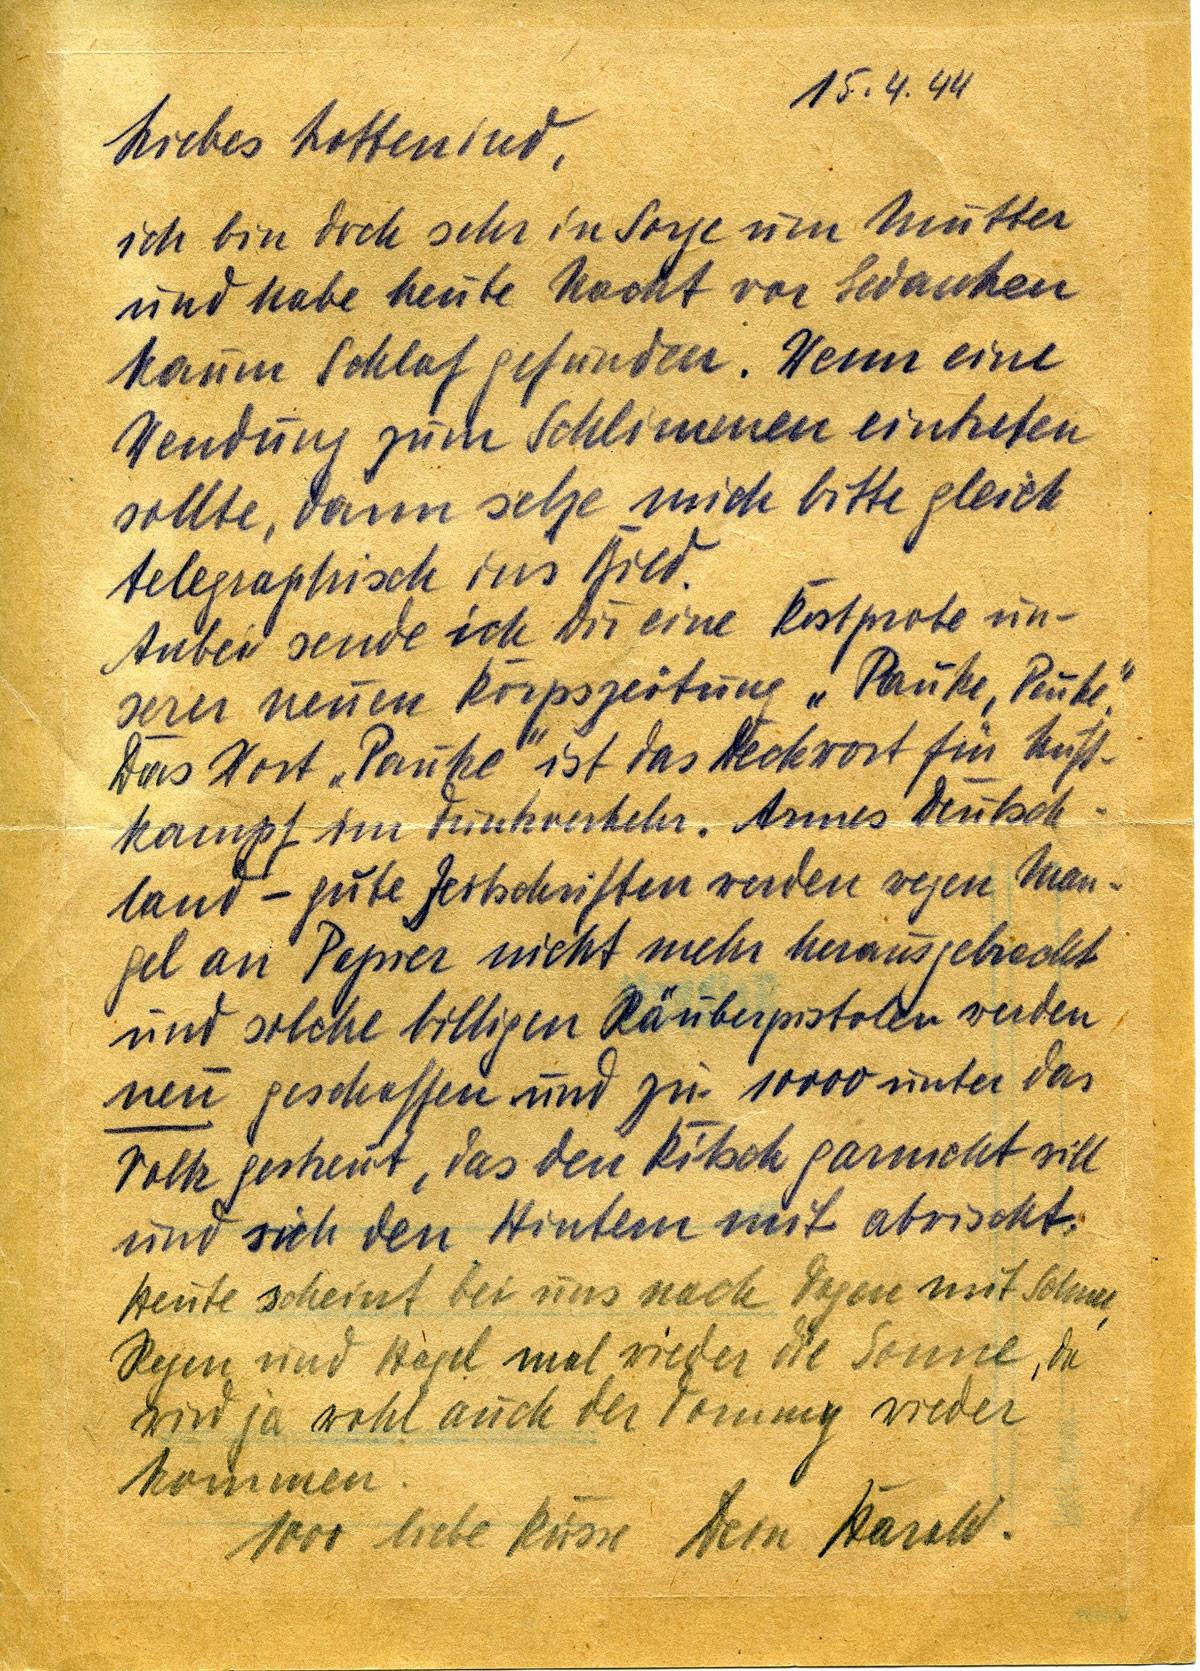 15.4.44
Liebes Lottenind,
ich bin doch sehr in Sorge um Mutter
und habe heute Nacht vor Gedanken
kaum Schlaf gefunden. Wenn eine
Wendung zum Schlimmen eintreten
sollte, dann setze mich bitte gleich
telegraphisch ins Bild.
Anbei sende ich Dir eine Kostprobe un-
serer neuen Korpszeitung „Pauke, Pauke."
Das Wort „Pauke" ist das Deckwort für Luft-
kampf im Funkverkehr. Armes Deutsch-
land – gute Zeitschriften werden wegen Man-
gel an Papier nicht mehr herausgebracht
und solche billigen Räuberpistolen werden
neu geschaffen und zu 10000 unter das
Volk gestreut, das den Kitsch garnicht will
und sich den Hintern mit abwischt.
Heute scheint bei uns nach Tagen mit Schnee,
Regen und Hagel mal wieder die Sonne, da
wird ja wohl auch der Tommy wieder
kommen.
1000 liebe Küsse Dein Harald.